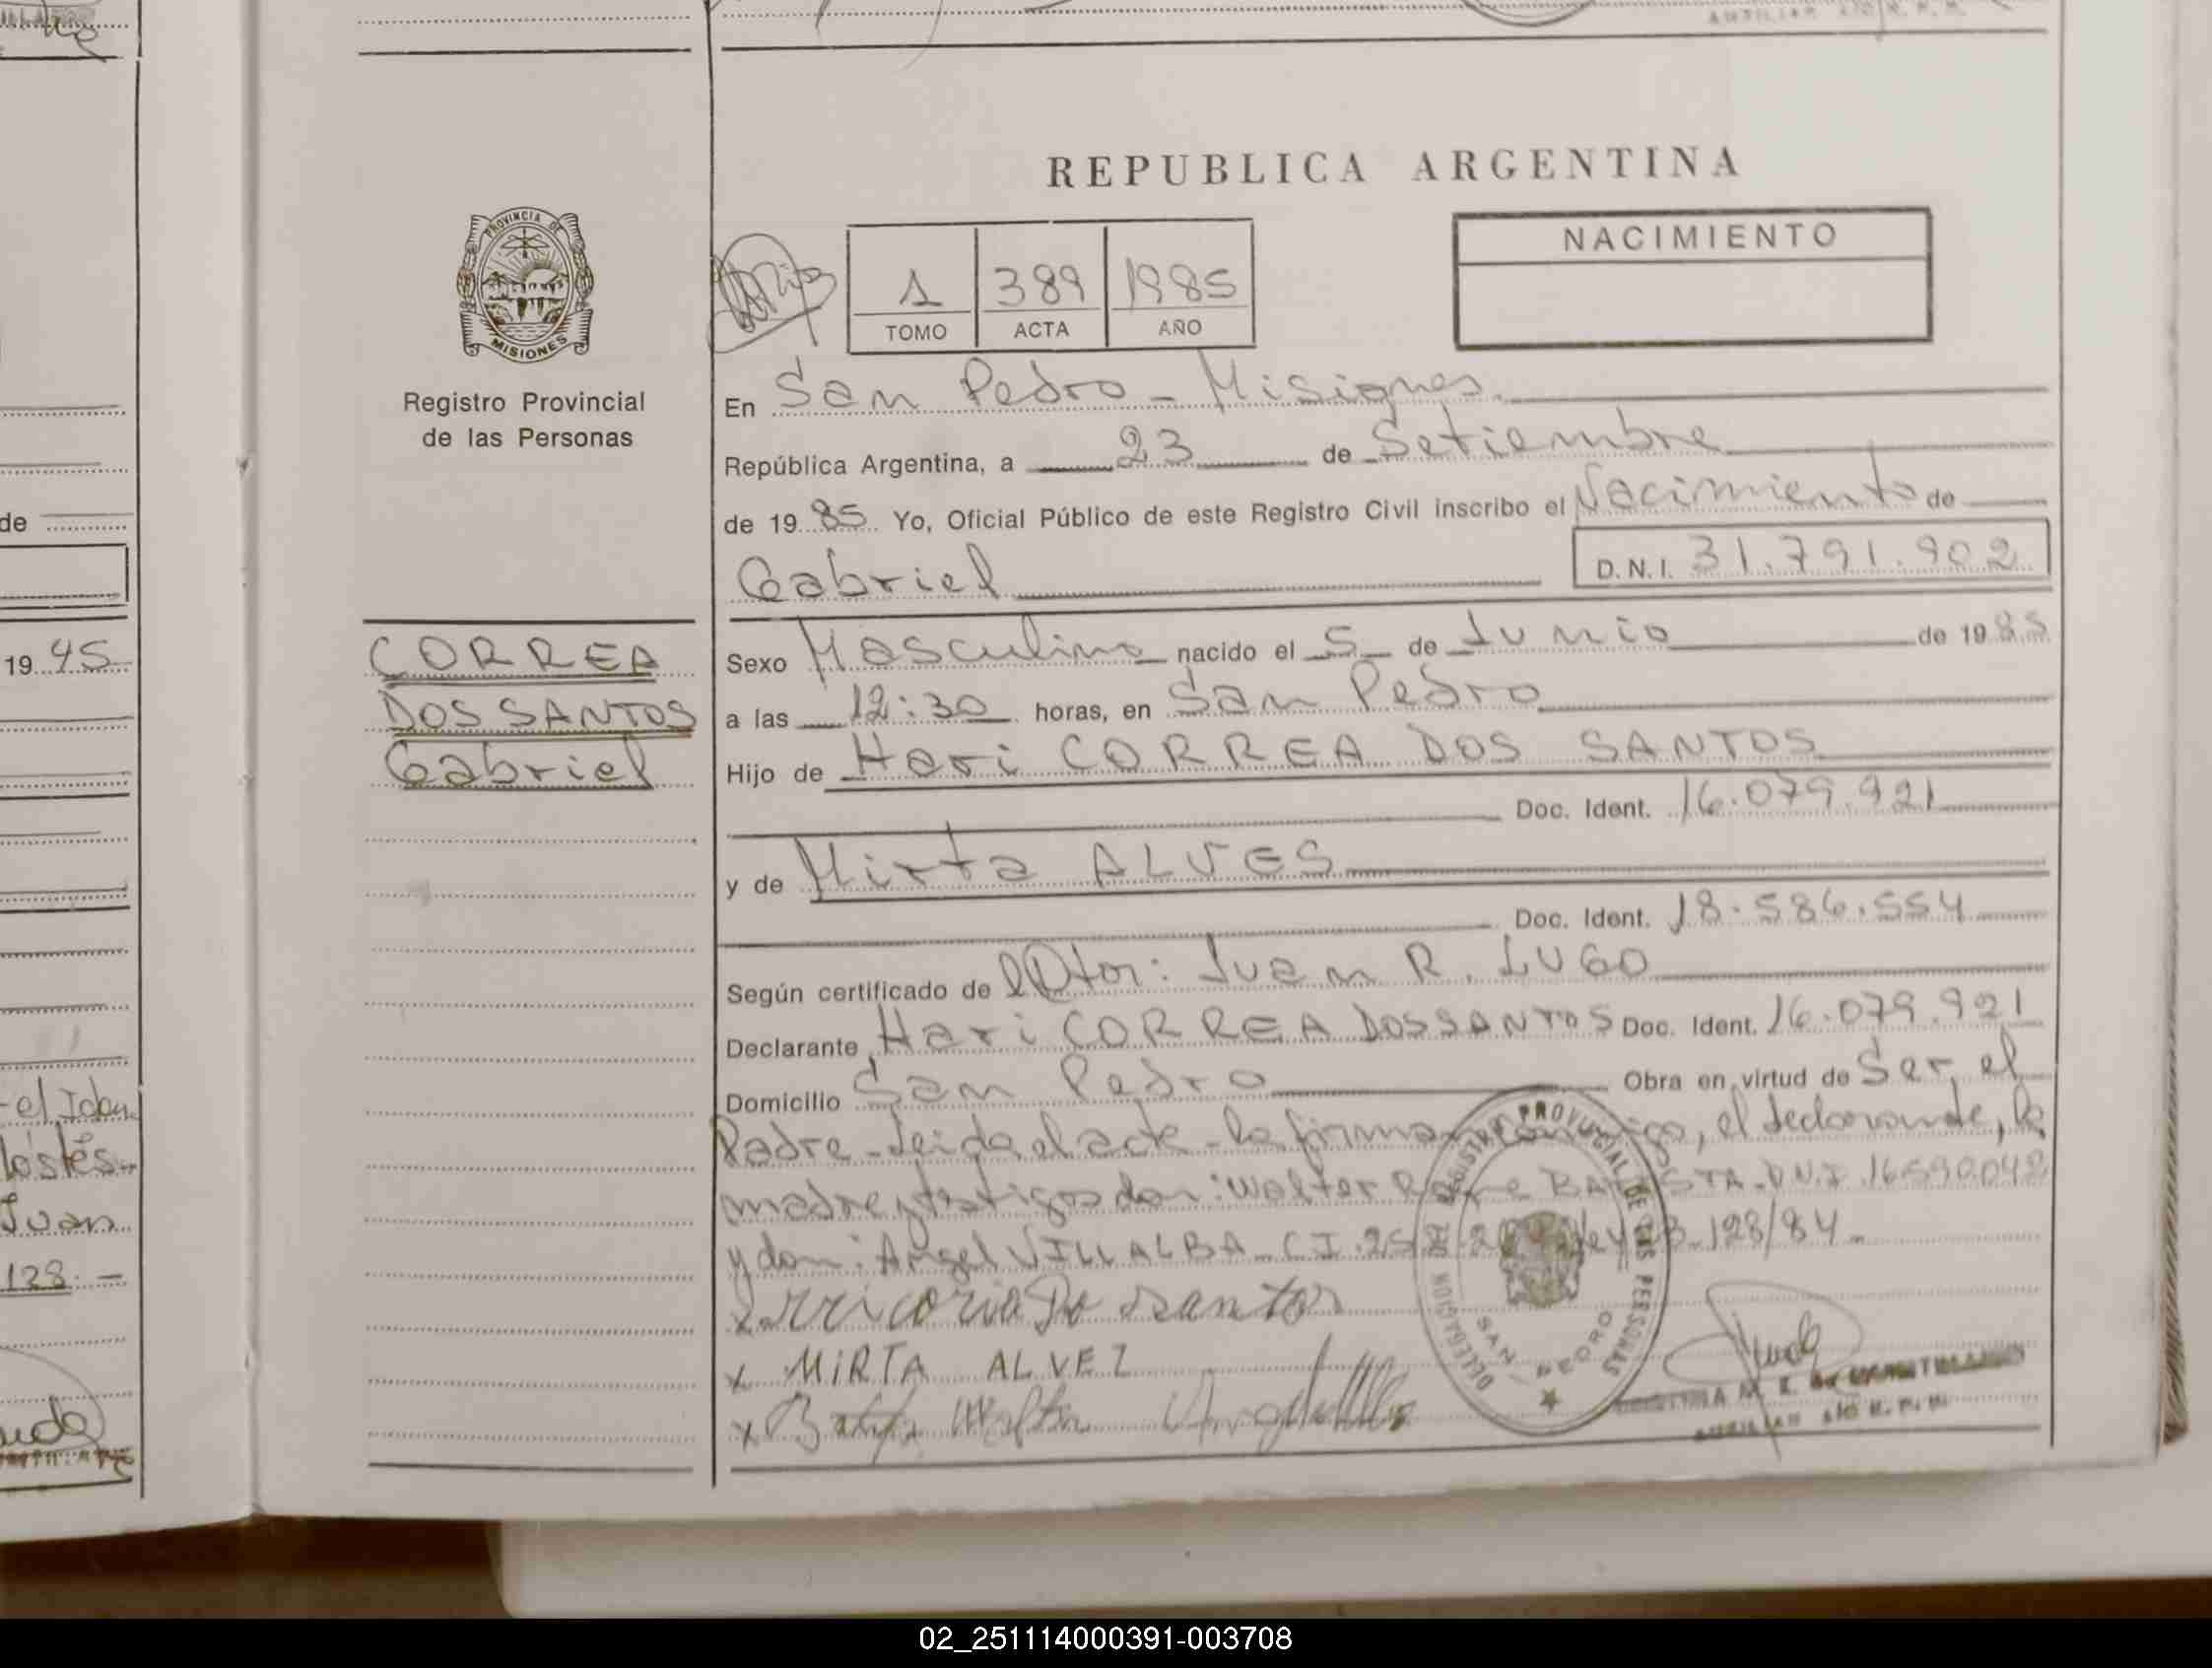 REPUBLICA ARGENTINA
PROVINCIA DE
MISIONES
Registro Provincial
de las Personas
1 389 1985
TOMO ACTA AÑO
NACIMIENTO
En San Pedro - Misiones.
República Argentina, a 23 de Setiembre
de 1985 Yo, Oficial Público de este Registro Civil inscribo el Nacimiento de
Gabriel D.N.I. 31.791.902
CORREA
DOS SANTOS
Gabriel
Sexo Masculino nacido el 5 de Junio de 1985
a las 12:30 horas, en San Pedro
Hijo de Hari CORREA DOS SANTOS
Doc. Ident. 16.079.921
y de Mirta ALVES
Doc. Ident. 18.586.554
Según certificado de Dtor: Juan R. LUGO
Declarante Hari CORREA DOS SANTOS Doc. Ident. 16.079.921
Domicilio San Pedro Obra en virtud de Ser el
Padre - Leida el acta - la firman conmigo, el declarante, la
madre y testigos don: Walter BATISTA - D.N.I. 16590042
y don: Angel VILLALBA - C I. 128/84 -
santos
x MIRTA ALVEZ
x Walter
DELEGACION REGISTRO PROVINCIAL DE LAS PERSONAS
SAN PEDRO
de
19 45
de
el Iden
Juan
128. -
02_251114000391-003708